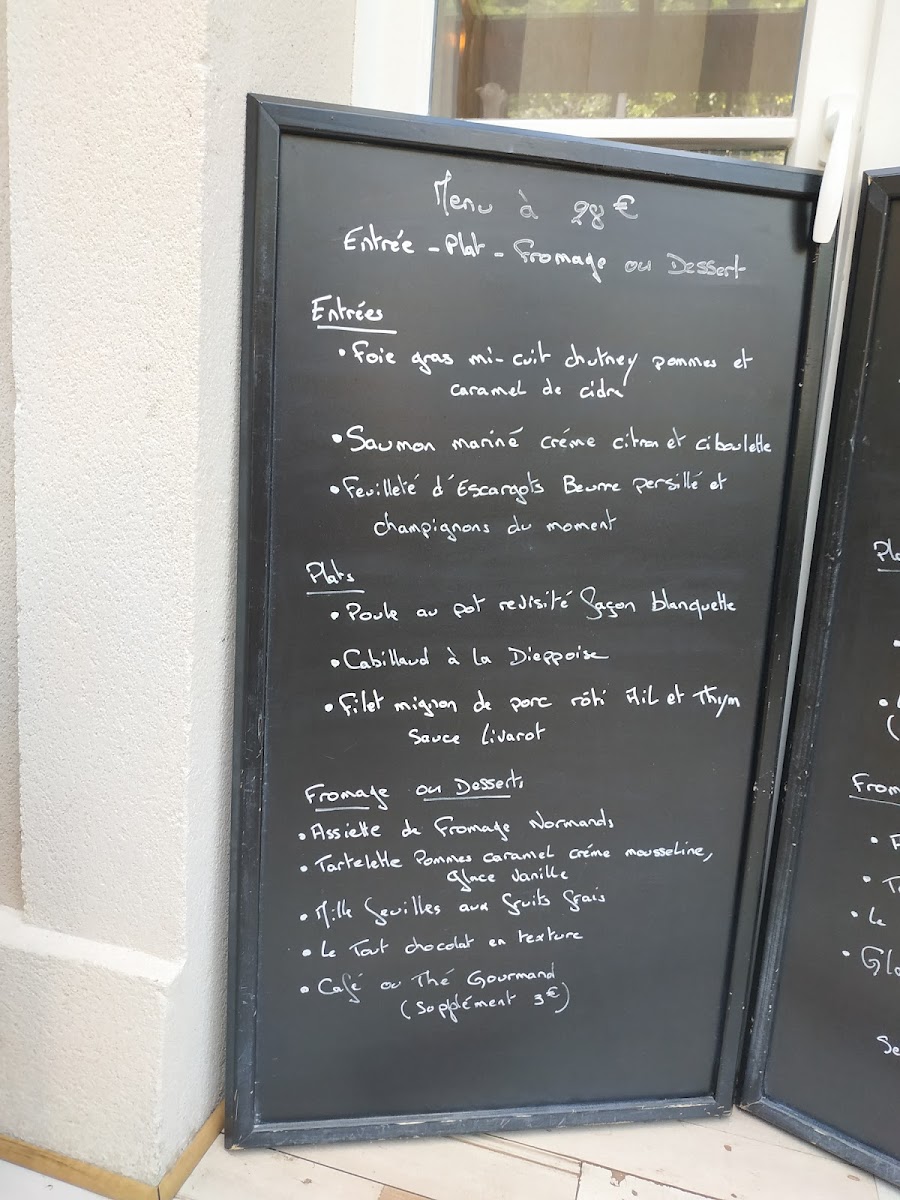 Menu à 28 €
Entrée - Plat - Fromage ou Dessert
Entrées
• Foie gras mi-cuit chutney pommes et
caramel de cidre
• Saumon mariné créme citron et ciboulette
• Feuilleté d'Escargots Beurre persillé et
champignons du moment
Plats
• Poule au pot revisité façon blanquette
• Cabillaud à la Dieppoise
• Filet mignon de porc rôti Ail et Thym
Sauce Livarot
Fromage ou Desserts
• Assiette de Fromage Normands
• Tartelette Pommes caramel créme mousseline,
glace vanille
• Mille feuilles aux fruits frais
• Le Tout chocolat en texture
• Café ou Thé Gourmand
(Supplément 3€)
Pla
From
• Le
• Gla
Se